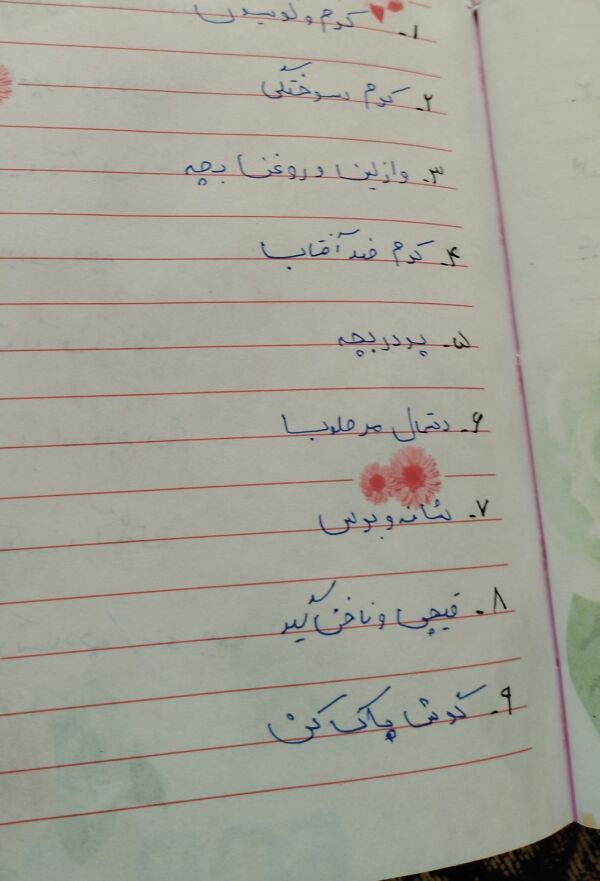 ۱. کرم و لوسیون
۲. کرم سوختگی
۳. وازلین و روغن بچه
۴. کرم ضد آفتاب
۵. پودر بچه
۶. دستمال مرطوب
۷. شانه و برس
۸. قیچی و ناخن گیر
۹. گوش پاک کن